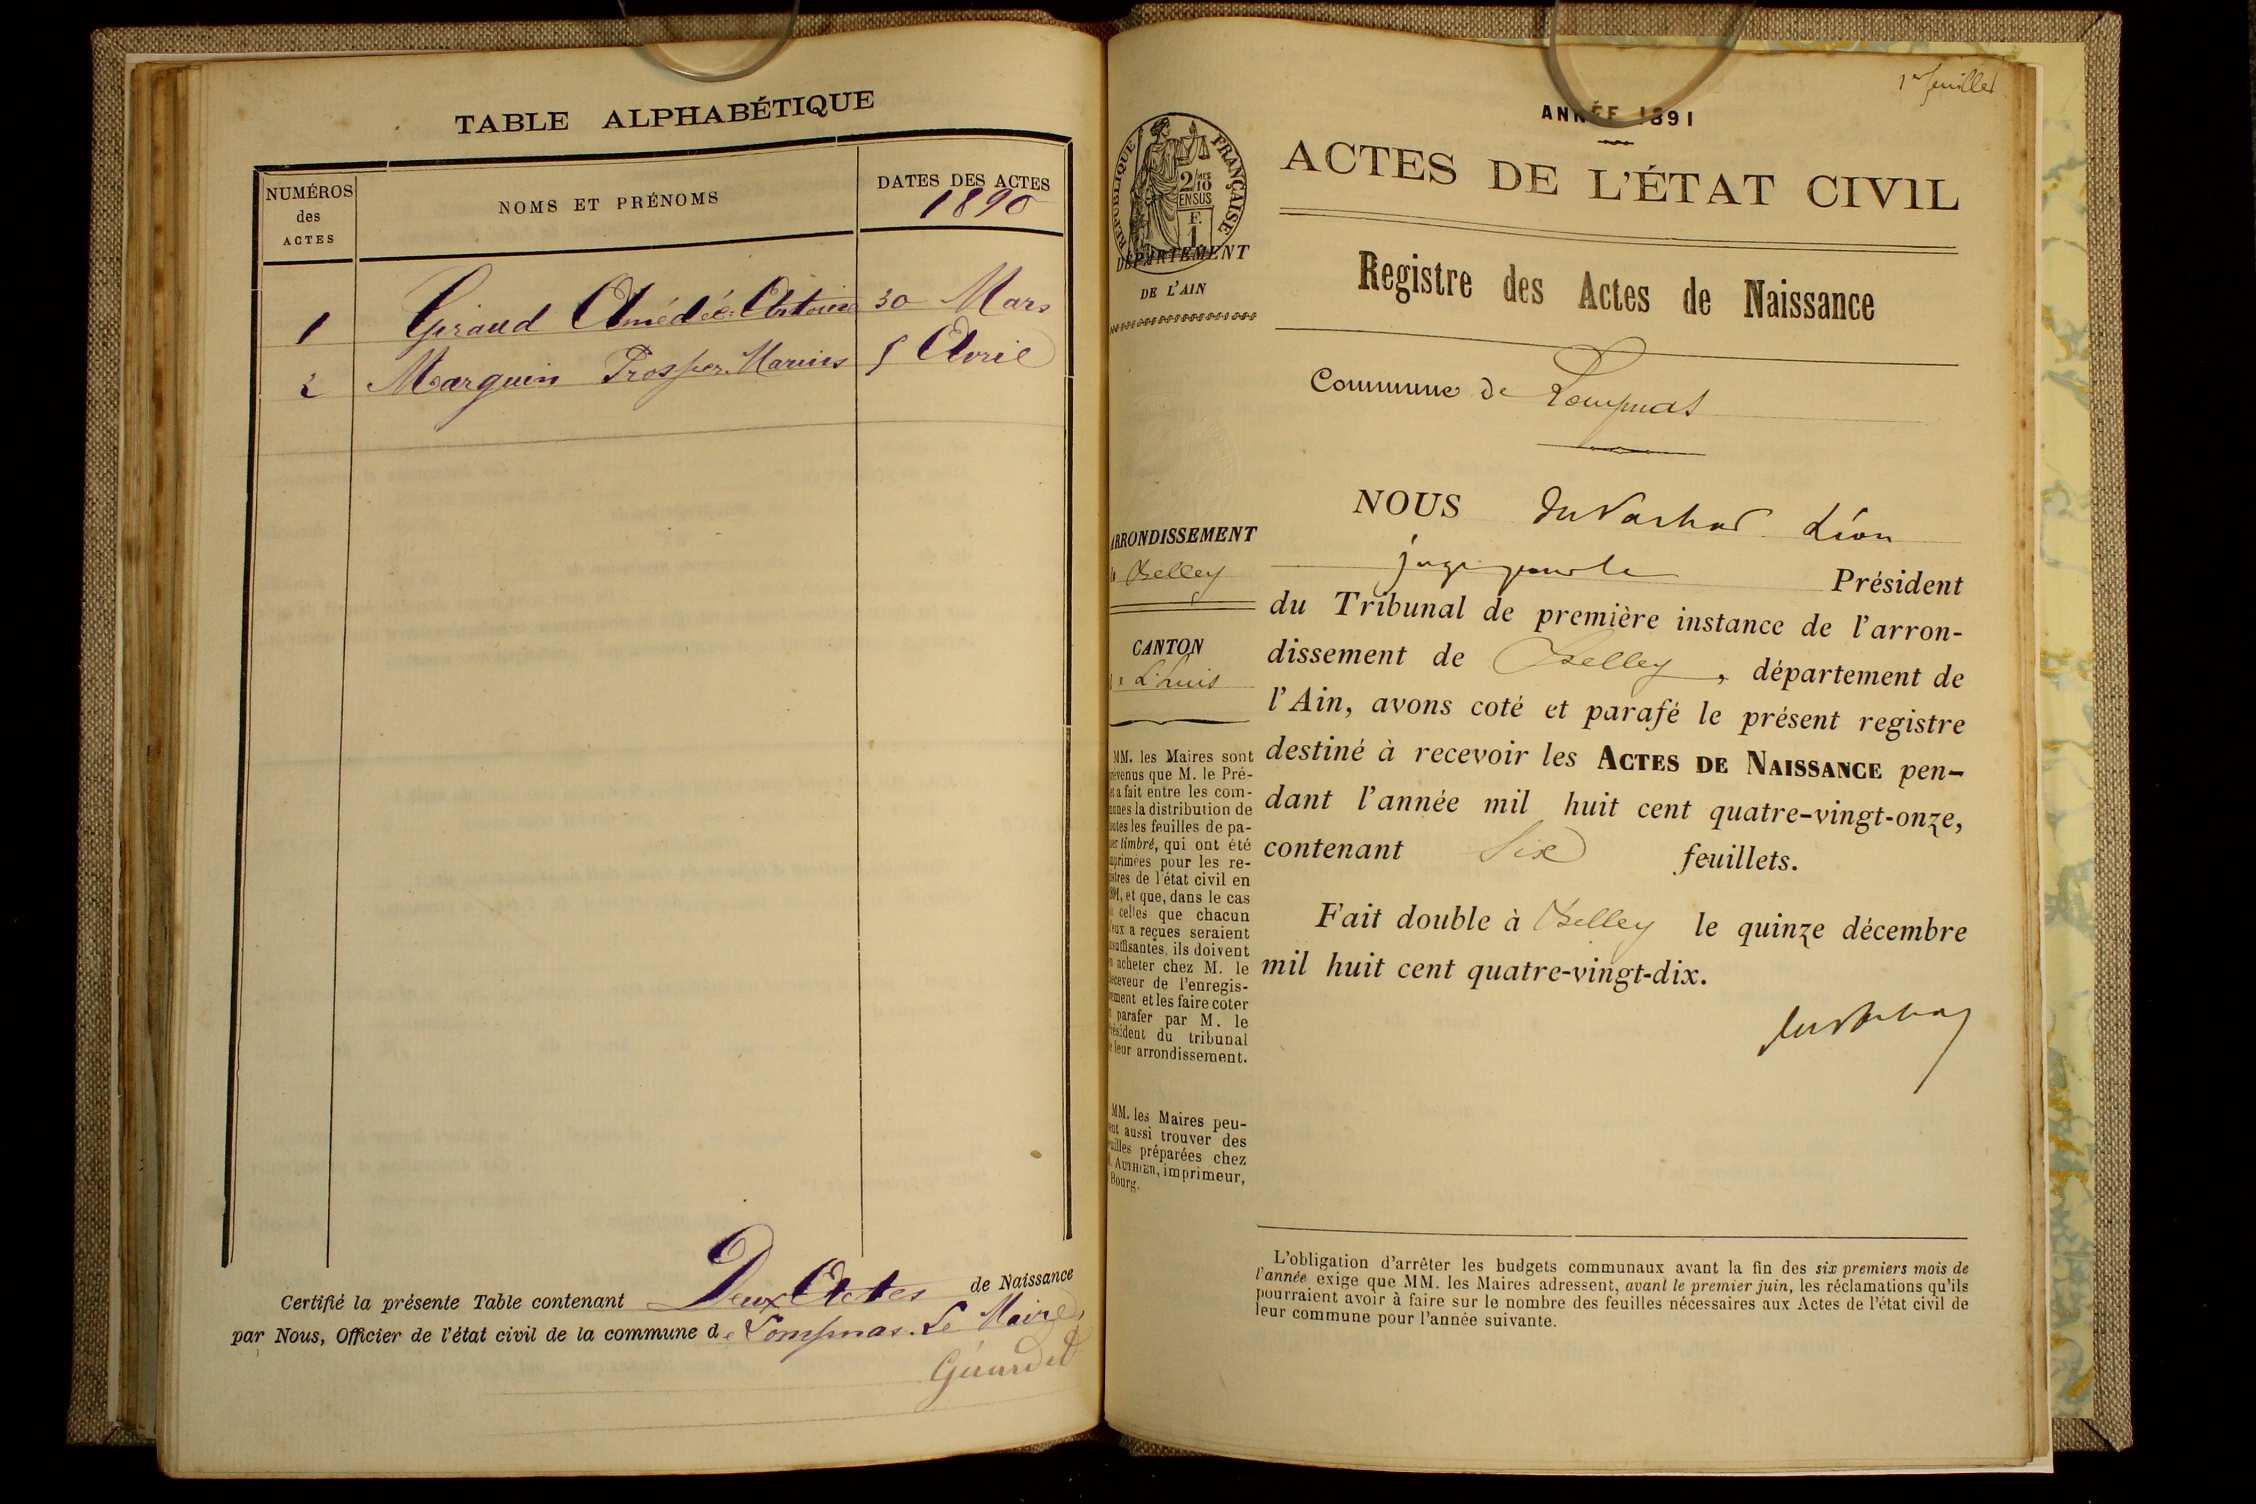 TABLE ALPHABÉTIQUE
NUMÉROS
des
ACTES
NOMS ET PRÉNOMS
DATES DES ACTES
1890
1 Giraud Amédée Antoine 30 Mars
2 Marguin Prosper Marius 5 Avril
Certifié la présente Table contenant Deux Actes de Naissance
par Nous, Officier de l'état civil de la commune de Lompnas. Le Maire,
1er feuillet
ANNÉE 1891
RÉPUBLIQUE FRANÇAISE
2/10
EN SUS
F.
1
DÉPARTEMENT
DE L'AIN
ACTES DE L'ÉTAT CIVIL
Registre des Actes de Naissance
Commune de Lompnas
ARRONDISSEMENT
de Belley
CANTON
de Lhuis
MM. les Maires sont
prévenus que M. le Pré-
fet a fait entre les com-
munes la distribution de
toutes les feuilles de pa-
pier timbré, qui ont été
imprimées pour les re-
gistres de l'état civil en
1891, et que, dans le cas
où celles que chacun
d'eux a reçues seraient
insuffisantes, ils doivent
en acheter chez M. le
Receveur de l'enregis-
trement et les faire coter
et parafer par M. le
Président du tribunal
de leur arrondissement.
MM. les Maires peu-
vent aussi trouver des
feuilles préparées chez
M. AUTHIER, imprimeur,
à Bourg.
NOUS Léon
juge pour le Président
du Tribunal de première instance de l'arron-
dissement de Belley, département de
l'Ain, avons coté et parafé le présent registre
destiné à recevoir les ACTES DE NAISSANCE pen-
dant l'année mil huit cent quatre-vingt-onze,
contenant Six feuillets.
Fait double à Belley le quinze décembre
mil huit cent quatre-vingt-dix.
L'obligation d'arrêter les budgets communaux avant la fin des six premiers mois de
l'année exige que MM. les Maires adressent, avant le premier juin, les réclamations qu'ils
pourraient avoir à faire sur le nombre des feuilles nécessaires aux Actes de l'état civil de
leur commune pour l'année suivante.